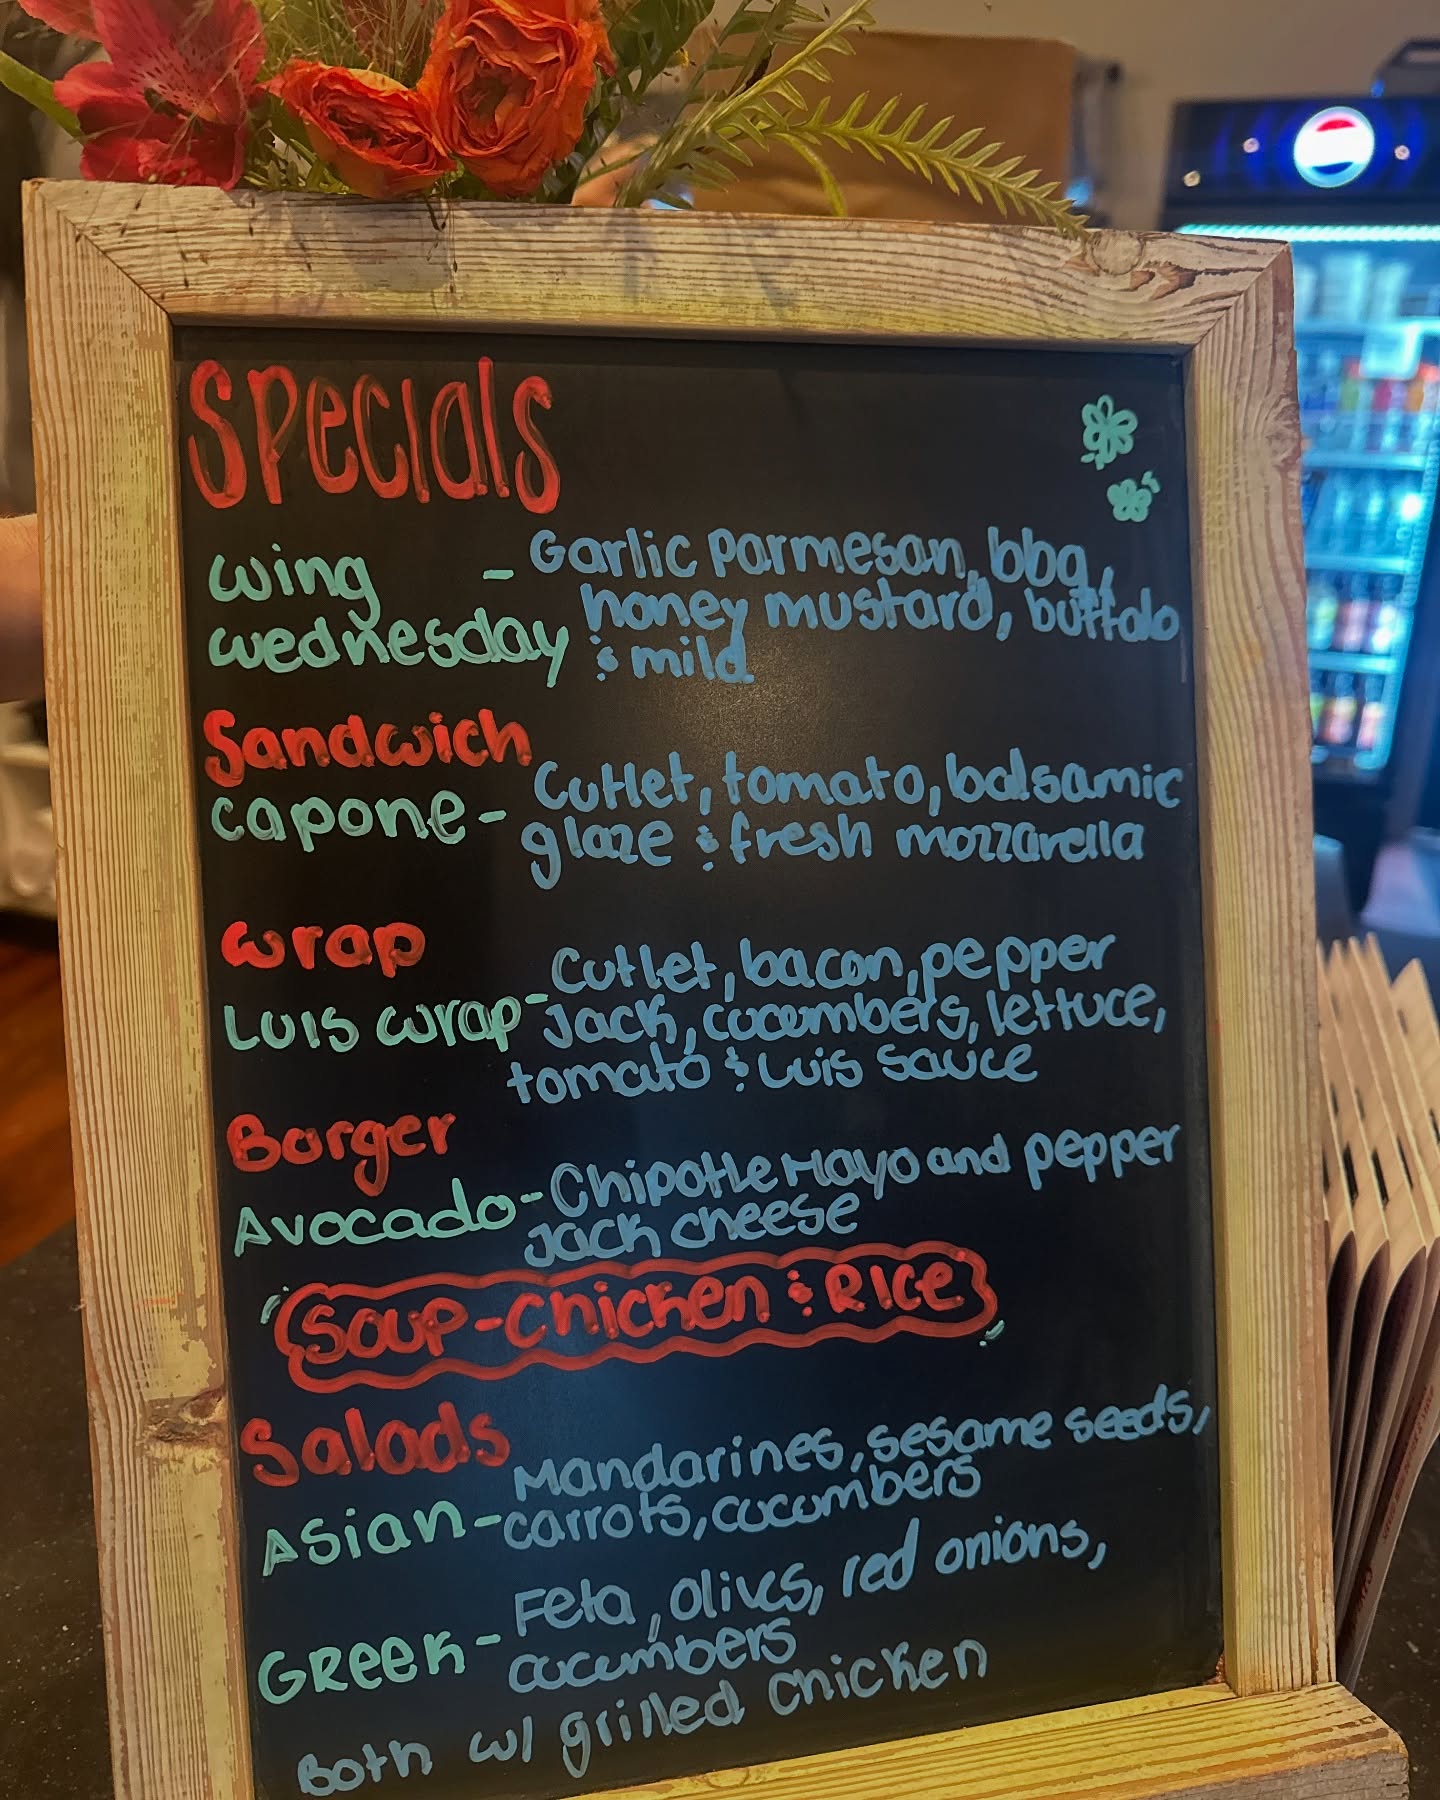 Specials
wing - Garlic Parmesan, bbq,
wednesday honey mustard, buffalo
& mild
Sandwich
capone - Cutlet, tomato, balsamic
glaze & fresh mozzarella
wrap
Luis wrap - Cutlet, bacon, pepper
Jack, cucumbers, lettuce,
tomato & Luis sauce
Borger
Avocado - Chipotle Mayo and pepper
Jack cheese
Soup - Chicken & Rice
Salads
Asian - Mandarines, sesame seeds,
carrots, cucumbers
Greek - Feta, olives, red onions,
cucumbers
Both w/ grilled chicken